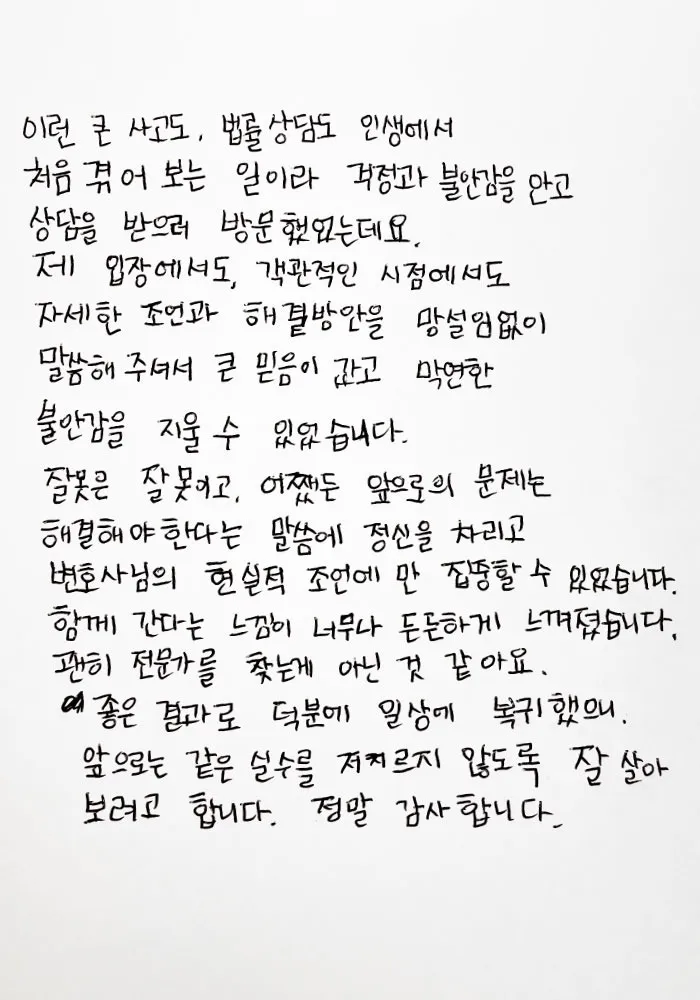 이런 큰 사고도, 법률상담도 인생에서
처음 겪어 보는 일이라 걱정과 불안감을 안고
상담을 받으러 방문했었는데요.
제 입장에서도, 객관적인 시점에서도
자세한 조언과 해결방안을 망설임없이
말씀해 주셔서 큰 믿음이 갔고 막연한
불안감을 지울 수 있었습니다.
잘못은 잘못이고, 어쨌든 앞으로의 문제는
해결해야 한다는 말씀에 정신을 차리고
변호사님의 현실적 조언에 만 집중할 수 있었습니다.
함께 간다는 느낌이 너무나 든든하게 느껴졌습니다.
괜히 전문가를 찾는게 아닌 것 같아요.
좋은 결과로 덕분에 일상에 복귀했으니.
앞으로는 같은 실수를 저지르지 않도록 잘 살아
보려고 합니다. 정말 감사합니다.